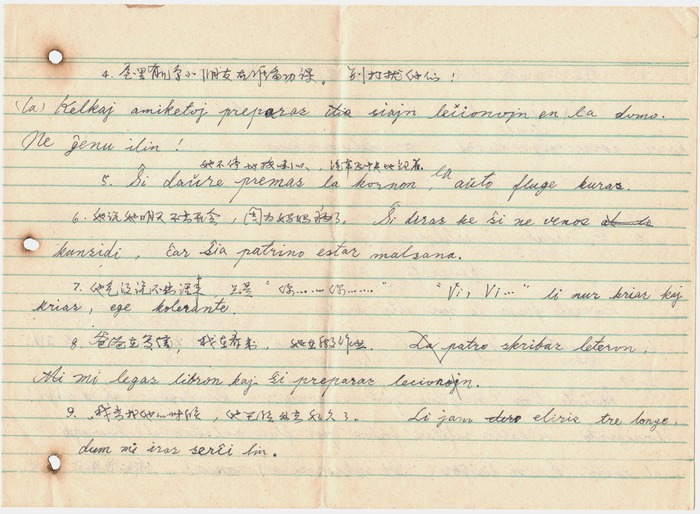 4. 屋里有几个小朋友在准备功课。 别打扰他们！
(La) Kelkaj amiketoj preparas siajn lecionojn en la domo.
Ne ĝenu ilin !
她不停地按喇叭、汽车
5. Ŝi daŭre premas la kornon, la aŭto fluge kuras.
6. 她说她明天不去开会，因为妈妈病了。 Ŝi diras ke ŝi ne venos
kunsidi, ĉar ŝia patrino estas malsana.
7. 他 " 你……你……" " Vi, Vi..." li nur krias kaj
krias, ege kolerante.
8. 爸爸在写信，我在看书， 她在 La patro skribas leteron,
Mi mi legas libron kaj ŝi preparas lecionojn.
9. 我去找他的时候， 他已经出去很久了。 Li jam eliris tre longe,
dum mi iras serĉi lin.